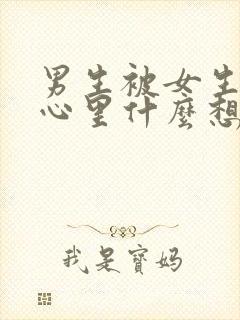 男生被女生
心里什麼想
我是寶妈